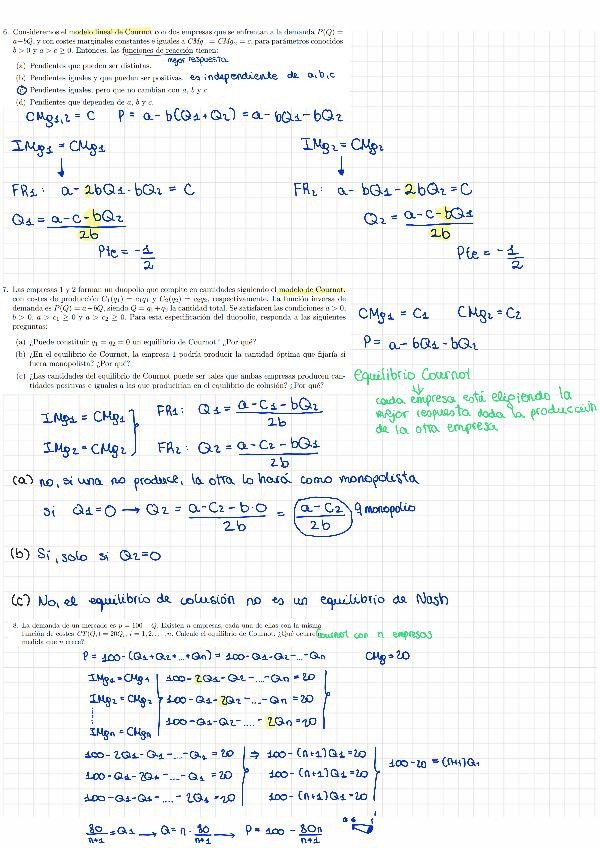 6. Consideremos el modelo lineal de Cournot con dos empresas que se enfrentan a la demanda P(Q) =
a−bQ, y con costes marginales constantes e iguales a CMg₁ = CMg₂ = c, para parámetros conocidos
b > 0 y a > c ≥ 0. Entonces, las funciones de reacción tienen:
mejor respuesta
(a) Pendientes que pueden ser distintas.
(b) Pendientes iguales y que pueden ser positivas. es independiente de a,b,c
(c) Pendientes iguales, pero que no cambian con a, b y c
(d) Pendientes que dependen de a, b y c.
CMg1,2 = C P = a - b(Q1+Q2) = a - bQ1 - bQ2
IMg1 = CMg1 IMg2 = CMg2
FR1: a - 2bQ1 - bQ2 = C FR2: a - bQ1 - 2bQ2 = C
Q1 = (a-c-bQ2)/2b Q2 = (a-c-bQ1)/2b
Pte = -1/2 Pte = -1/2
7. Las empresas 1 y 2 forman un duopolio que compite en cantidades siguiendo el modelo de Cournot,
con costes de producción C₁(q₁) = c₁q₁ y C₂(q₂) = c₂q₂, respectivamente. La función inversa de
demanda es P(Q) = a−bQ, siendo Q = q₁+q₂ la cantidad total. Se satisfacen las condiciones a > 0,
b > 0, a > c₁ ≥ 0 y a > c₂ ≥ 0. Para esta especificación del duopolio, responda a las siguientes
preguntas:
CMg1 = C1 CMg2 = C2
P = a - bQ1 - bQ2
(a) ¿Puede constituir q₁ = q₂ = 0 un equilibrio de Cournot? ¿Por qué?
(b) ¿En el equilibrio de Cournot, la empresa 1 podría producir la cantidad óptima que fijaría si
fuera monopolista? ¿Por qué?
(c) ¿Las cantidades del equilibrio de Cournot puede ser tales que ambas empresas producen can-
tidades positivas e iguales a las que producirían en el equilibrio de colusión? ¿Por qué?
Equilibrio Cournot
cada empresa está eligiendo la
mejor respuesta dada la producción
de la otra empresa
IMg1 = CMg1 FR1: Q1 = (a-C1-bQ2)/2b
IMg2 = CMg2 FR2: Q2 = (a-C2-bQ1)/2b
(a) no, si una no produce, la otra lo hará como monopolista
si Q1=0 → Q2 = (a-C2-b·0)/2b = (a-C2)/2b q monopolio
(b) Sí, solo si Q2=0
(c) No, el equilibrio de colusión no es un equilibrio de Nash
8. La demanda de un mercado es p = 100 − Q. Existen n empresas, cada una de ellas con la misma
función de costes CT(Qᵢ) = 20Qᵢ, i = 1, 2, ..., n. Calcule el equilibrio de Cournot. ¿Qué ocurre a
medida que n crece?
Cournot con n empresas
P = 100-(Q1+Q2+...+Qn) = 100-Q1-Q2-...-Qn CMg=20
IMg1 = CMg1 100-2Q1-Q2-...-Qn = 20
IMg2 = CMg2 100-Q1-2Q2-...-Qn = 20
IMgn = CMgn 100-Q1-Q2-...-2Qn = 20
100-2Q1-Q1-...-Q1 = 20 ⇒ 100-(n+1)Q1=20
100-Q1-2Q1-...-Q1 = 20 100-(n+1)Q1=20 100-20 = (n+1)Q1
100-Q1-Q1-...-2Q1 = 20 100-(n+1)Q1=20
80/(n+1) = Q1 → Q = n · 80/(n+1) → P = 100 - 80n/(n+1)